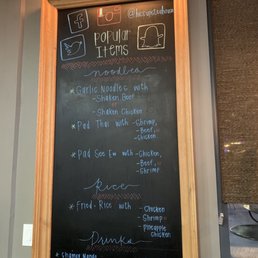 Popular
Items
noodles
* Garlic Noodles with
- Shaken Beef
- Shaken Chicken
* Pad Thai with - Shrimp,
- Beef,
- Chicken
* Pad See Ew with - Chicken,
- Beef,
- Shrimp
Rice
* Fried Rice with - Chicken
- Shrimp
- Pineapple
Chicken
Drinks